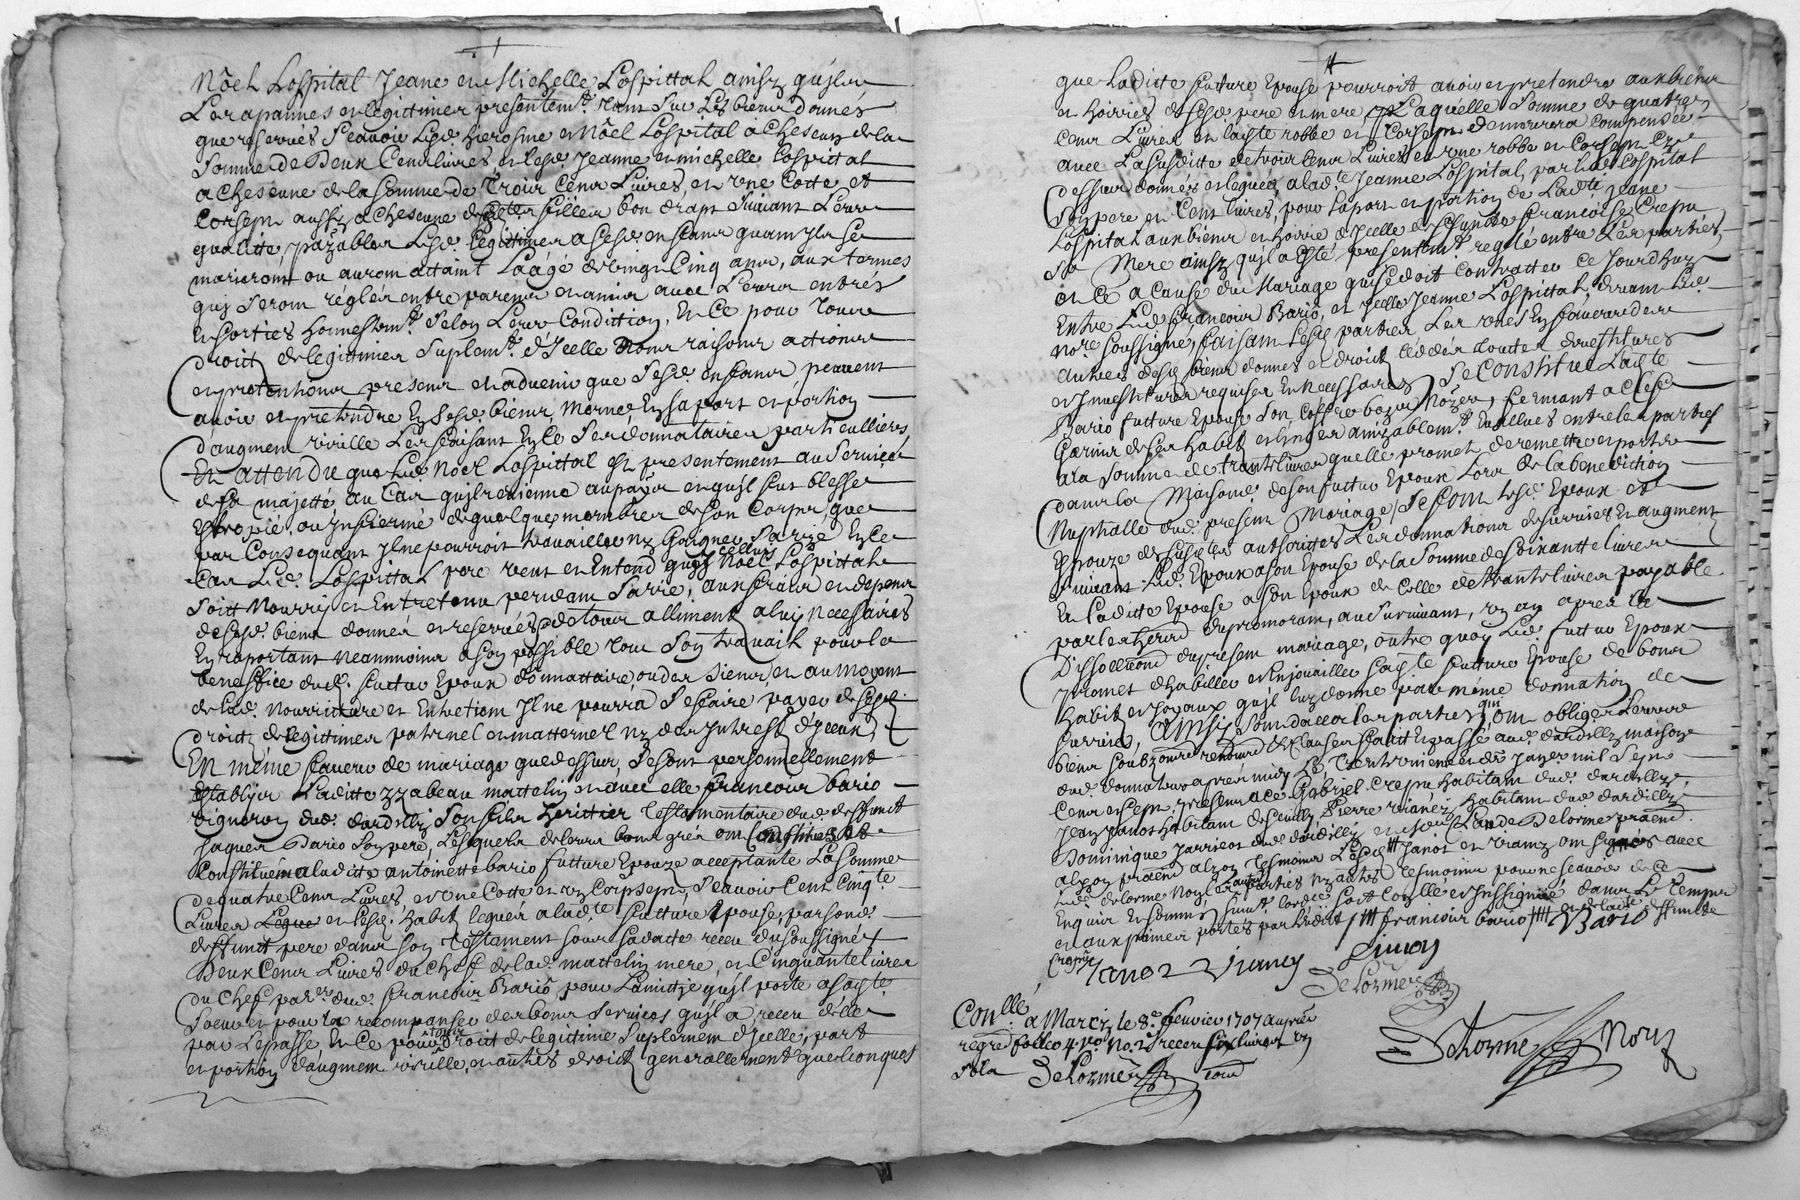 Nöel Lospital Jeane et Michelle Lospittal ainsy quil
Les apannes et legittimes presentemt. Sur Les biens donnés
que reservés Scavoir Lesd. hierosme et Nöel Lospital a Chescun de la
Somme de Deux Cens livres et lesd. Jeanne et michelle Lospittal
a Chescune de la Somme de trois Cens Livres, et une Cotte et
Corsept aussy a Chescune filles bon drap Suivant Leur
qualitté, payables Lesd. legittimes a sesd. enfans quant ils se
mariront ou auront attaint Laagé de vingt Cinq ans, aux termes
quj Seront réglés entre parens et amis avec Leurs entrés
et sorties honnestemt. Selon Leur Condittion, Et Ce pour tous
droitt de legittimes Suplemt. d'Jcelle noms raisons actions
et prétentions présens et aduenir que Sesd. enfans peuuent
auoir et prettendre En Sesd. biens, Mome En sa part et portion
d'augment virille Les faisant En Ce Ses donnataires particulliers
Et attendu que Led. Nöel Lospittal est presentement au Service
de Sa majetté, au Cas qu'il reuienne au païs et qu'il fut blessé
Estropié, ou Infirme de quelques membres de son Corps, que
par Consequant Jl ne pourroit travailler ny Gaigner Sa vie En Ce
Cas Led. Lospittal pere veut et Entend que Nöel Lospittal
Soitt Nourry et Entretenu pendant Sa vie, aux fraix et depens
de Sesd. biens donnés et reservés de tous alliments a luy Necessaires
En raportant Neanmoins a son possible tout Son travail pour le
benefice dud. futtur Epoux donnattaire ou des Siens, et au moyent
de lad. Nourritture et Entretient Jl ne pourra Se faire payer de Sesd.
droitz de legittimes paternel et matternel ny des Jntrest d'Jceux,
En même faveur de mariage que dessus, Se sont personnellement
establyes Laditte yzabeau mattelin et avec elle francois bario
vigneron dud. dardilly Son fils herittier testamentaire dud. deffunt
Jaques Bario Son pere, Lesquels de leurs bons grés ont Constitués et
Constituent a laditte antoinette bario future Epouze acceptante La Somme
de quatre Cens Livres, et une Cotte et un Corpsept, Scavoir Cent Cinqte.
Livres et lesd. habit legués a lad.te futture Epouse, par sond.
deffunt pere dans Son testament Sous Sa datte receu du Soussigné
Deux Cens Livres du Chef de lad. mattelin mere, et Cinquante livres
du Chef par.er dud. francois Bario, pour L'amittie qu'il porte a sad.te
Soeur et pour la recompanser des bons Services qu'il a receu d'elle
par Le passé Et Ce pour tous droit de legittime Suplement d'Jcelle, part
et portion d'augment virille, et autres droitz generallement quelconques
que Laditte future Epouse pourroit auoir et pretendre aux biens
et hoiries de Sesd. pere et mere Laquelle Somme de quatres
Cens Livres et laditte robbe et Corsept demeurera Compensée
avec La Susditte de trois Cens Livres et une robbe et Corsept Cy
dessus donnés et legués a lad.te Jeanne Lospital, par led. Lospital
Son pere et Cent livres, pour la part et portion de Laditte Jeane
Lospital aux biens et hoirie d'Jcelle deffunte francoise Crespu
Sa Mere ainsy qu'il a Esté presentemt. reglé entre Les parties,
et Ce a Cause du Mariage quj Se doit Contratter Ce Jourdhuy
Entre Led. francois Bario, et Jcelle Jeanne Lospittal, devant Led.
no.re Soussigné, faisant Lesd. parties Les unes En faveur des
autres desd. biens donnés et droits Cédés touttes devestitures
et Jnvestitures requises Et Necessaires, Se Constitue Lad.te
Bario future Epouse Son Coffre boys Noyer, fermant a Clefs
Garnis de Ses habit et linges amiablemt. Evallues entre les parties
a la Somme de trante livres quelle promet de remettre et porter
dans la Maison de son futtur Epoux Lors de la benediction
Nuptialle dud. present Mariage, Se font Lesd. Epoux et
Epouze de Susd. authorittes Les donnations de Survies Et augment
Suivant Led. Epoux a son Epouse de la Somme de Soixantte livres
Et Laditte Epouse a son Epoux de Celle de trante livres payable
par les heritiers du premorant, au Survivant, un an apres la
Dissollution du present mariage, outre quoy Led. futtur Epoux
promet d'habiller et Enjouailler Sad.te futture Epouse de bons
habit et Joyaux qu'il luy donne par même donnation de
Survie, Ainsy Sont d'accor les parties quj ont obligés Leurs
biens Soubz renont. & Clauses fait Et passé aud. dardilly maison
dud. donnateur apres midy Le trente unieme de Janv. mil Sept
Cens et Sept, presens a Ce Gabriel Crespu habitant dud. dardilly,
Jean Janot habitant d'escully, Pierre Vianey habitant dud. dardilly
Dominique Jarricot dud. dardilly, et Sieur Claude Delorme praticn.
a lyon tesmoins Lesd. Janot et Vianey ont signés avec
Led. delorme, Non Les autres parties ny autres tesmoins pour ne Scavoir de Ce
Enquis Et Sommés Suivt. l'ord.ce Soit Conllé et Jnsignué dans Le Temps
et aux peines portées par Ledit /ttt francois bario
Crespu Janot Vianey Bario
Delorme
Conllé a Marcy le 8.e fevrier 1707 au
regre follio 4 vo. No. 2 receu six livres un
Sols Delorme
Delorme Nore